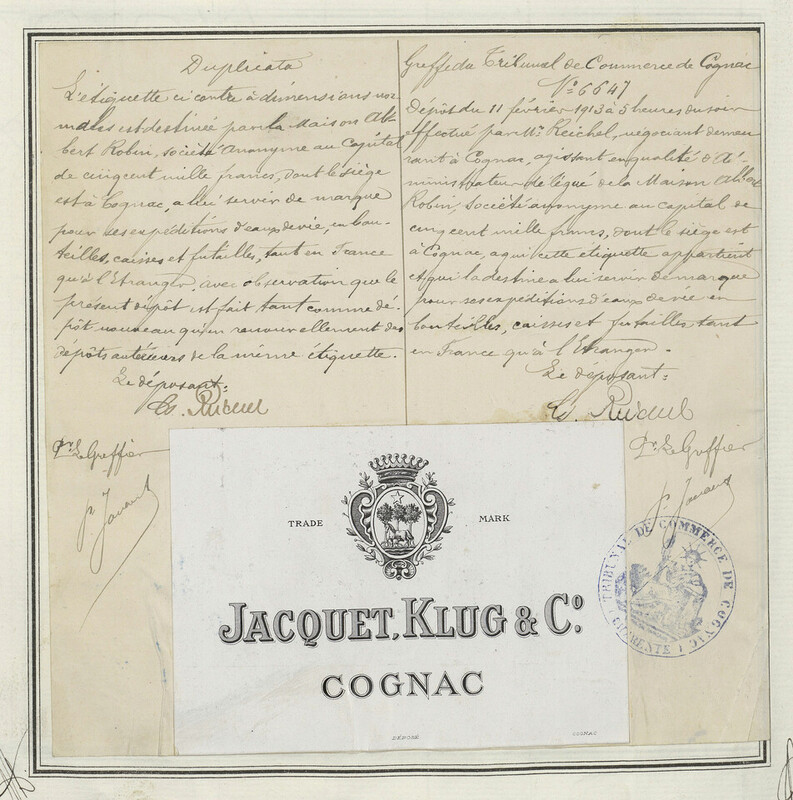 Duplicata
L'étiquette ci contre à dimensions nor
males est destinée par la Maison Al
bert Robin, société Anonyme au Capital
de cinq cent mille francs, dont le siège
est à Cognac, a lui servir de marque
pour ses expéditions d'eaux de vie, en bou
teilles, caisses et futailles, tant en France
qu'à l'Etranger, avec observation que le
présent dépôt est fait tant comme dé
pôt nouveau qu'en renouvellement des
dépôts antérieurs de la même étiquette.
Le déposant:
Pr. Le Greffier
Greffe du Tribunal de Commerce de Cognac
N° 6647
Dépôt du 11 février 1913 à 5 heures du soir
effectué par Mr. Reichel, négociant demeu
rant à Cognac, agissant en qualité d'Ad
ministrateur délégué de la Maison Albert
Robin, société anonyme au capital de
cinq cent mille francs, dont le siège est
à Cognac, a qui cette étiquette appartient
et qui la destine a lui servir de marque
pour ses expéditions d'eaux de vie en
bouteilles, caisses et futailles, tant
en France qu'à l'Etranger.
Le déposant:
Pr. Le Greffier
TRADE MARK
JACQUET, KLUG & Co.
COGNAC
DÉPOSÉ
COGNAC
TRIBUNAL DE COMMERCE DE COGNAC
(CHARENTE)